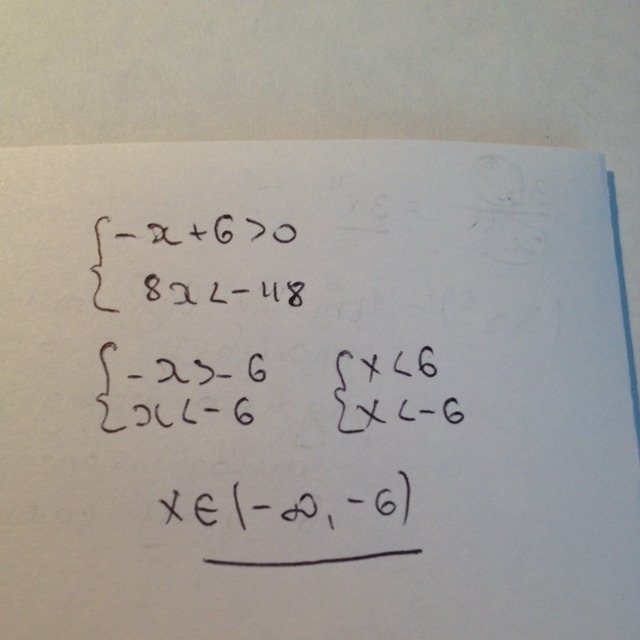 {-x+6>0
{8x<-48
{-x>-6 {x<6
{x<-6 {x<-6
x∈(-∞,-6)